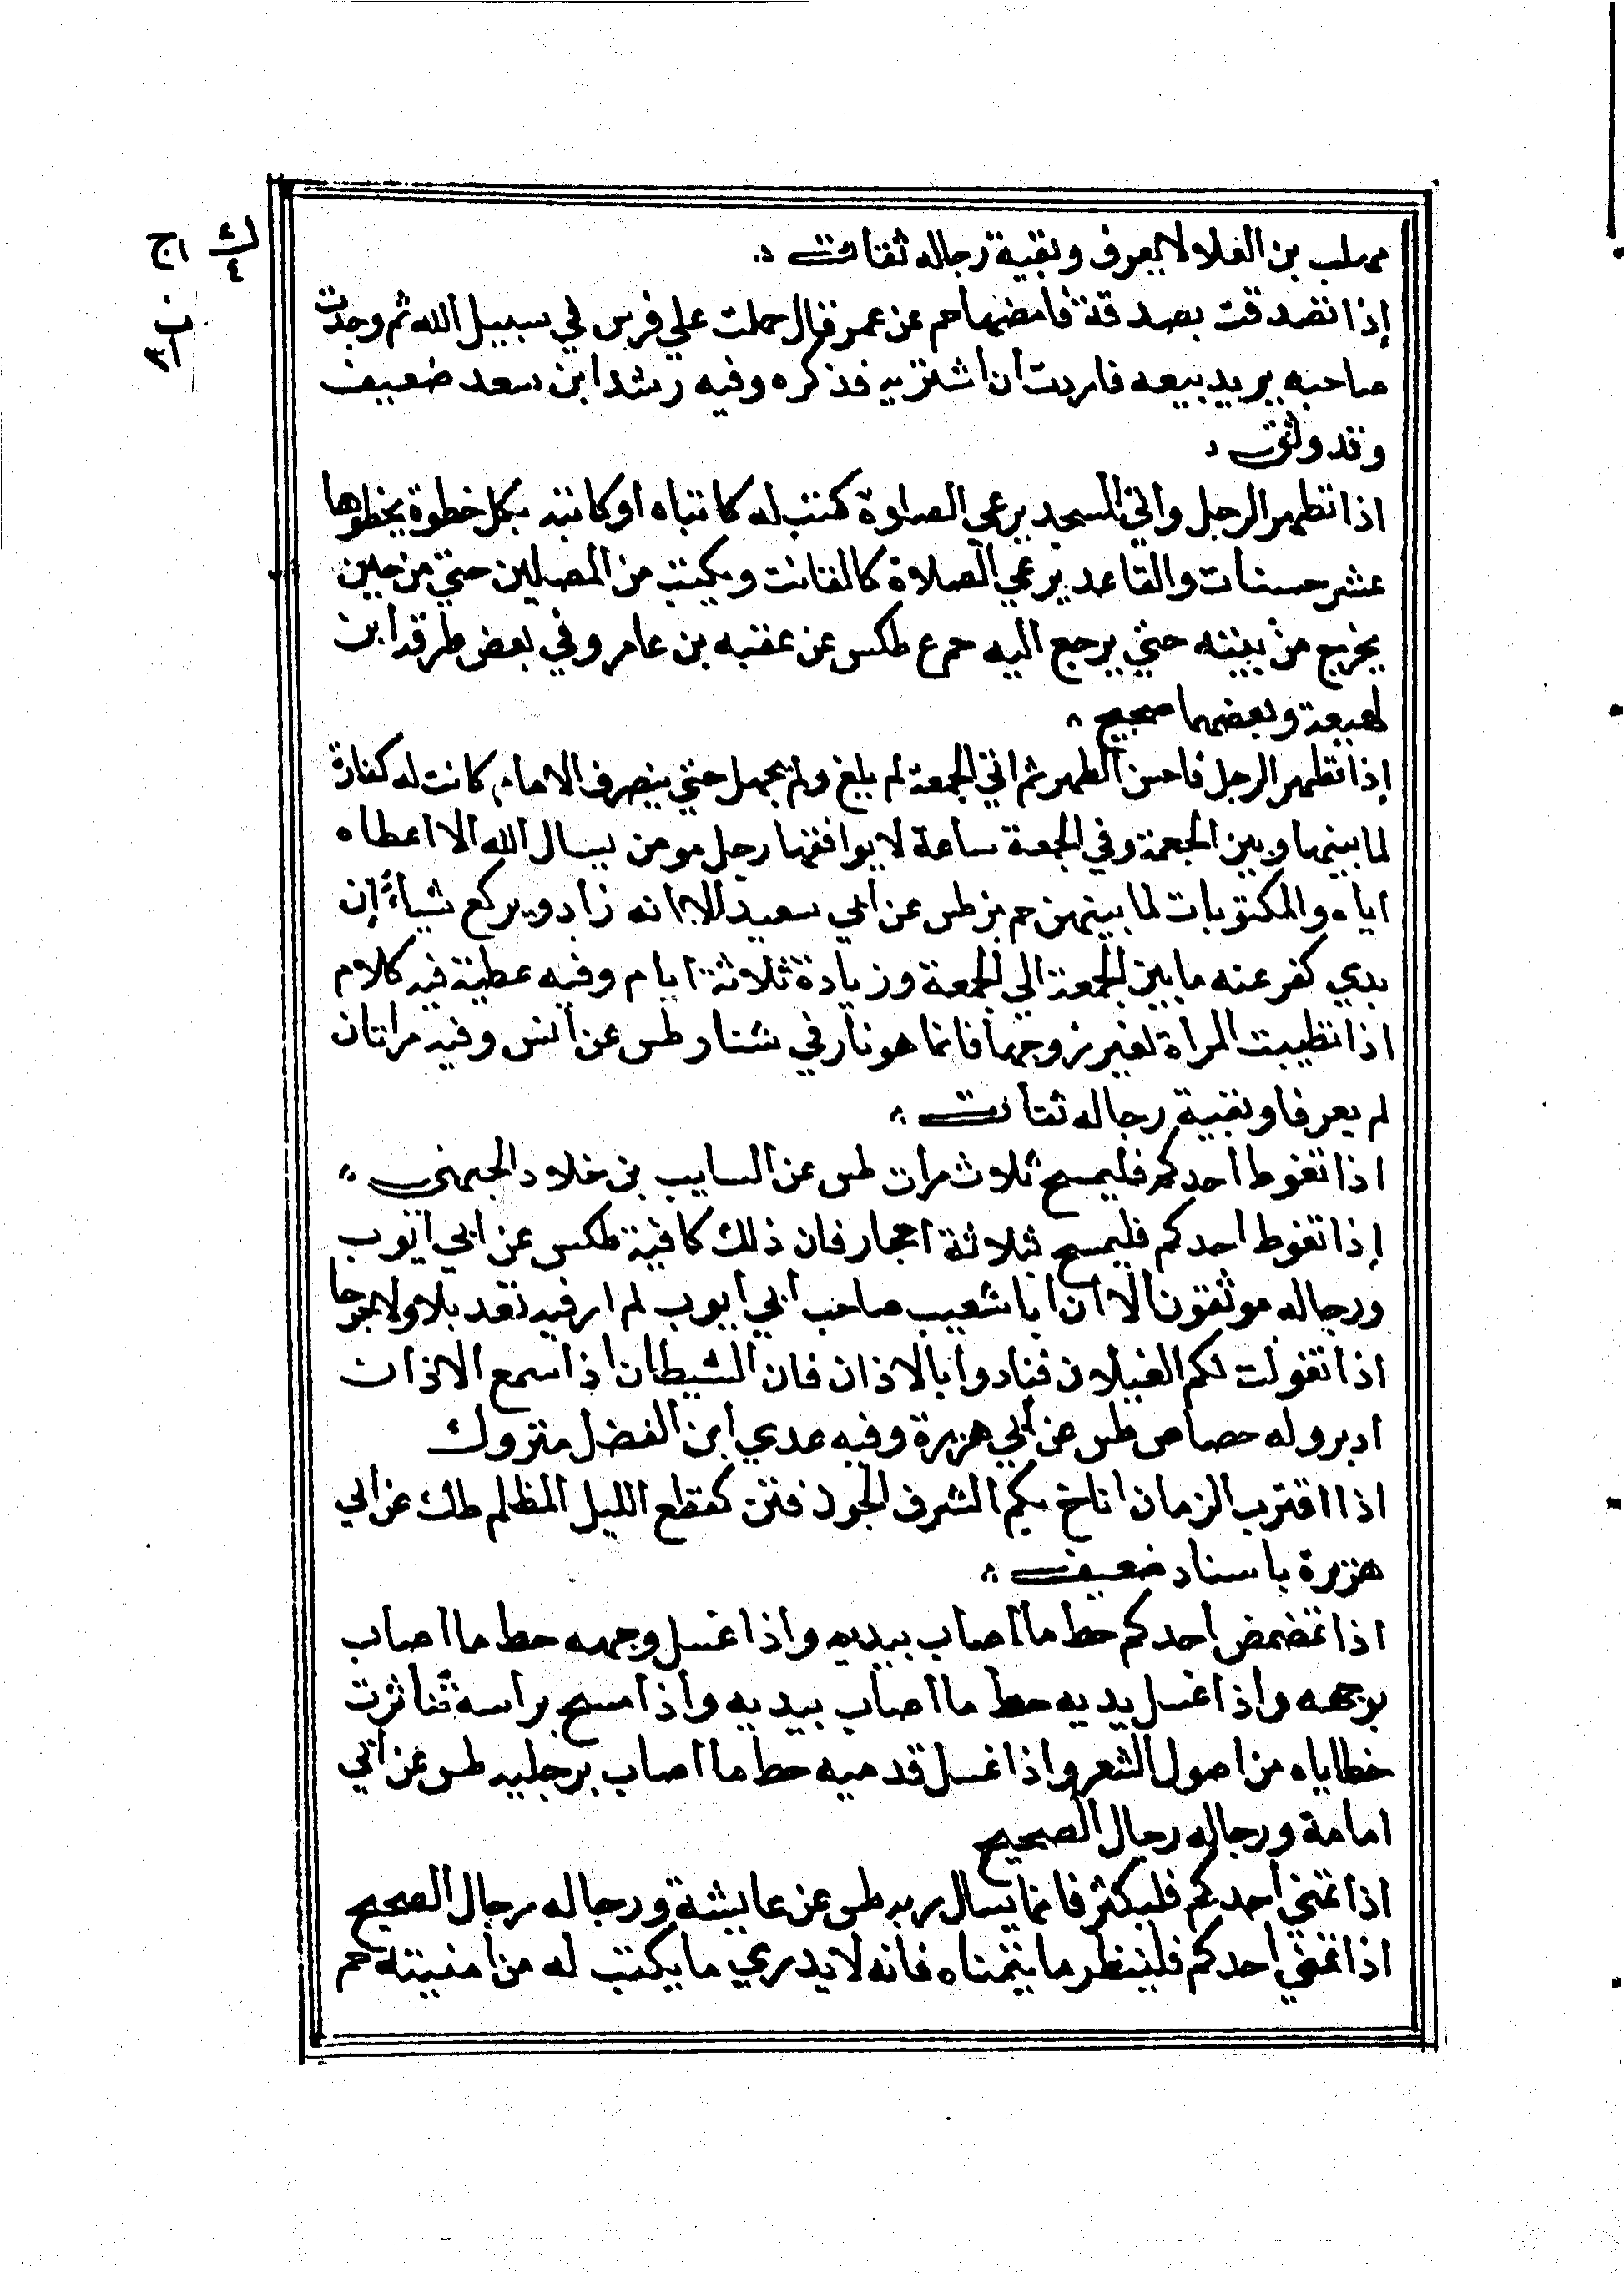 مهلب بن العلا لا يعرف وبقية رجاله ثقات
إذا تصدقت بصدقة فامضها حم عن عمر قال حملت علي فرس في سبيل الله ثم وجدت
صاحبه يريد بيعه فاردت ان اشتريه فذكره وفيه رشد ابن سعد ضعيف
وقد وثق
اذا تطهر الرجل واتي المسجد يرعي الصلوة كتب له كاتباه او كاتبه بكل خطوة يخطوها
عشر حسنات والقاعد يرعي الصلاة كالقانت ويكتب من المصلين حتي من حين
يخرج من بيته حتي يرجع اليه حم ع طكس عن عقبه بن عامر وفي بعض طرقه ابن
لهيعة وبعضها صحيح
إذا تطهر الرجل فاحسن الطهر ثم اتي الجمعة لم يلغ ولم يجهل حتي ينصرف الامام كانت له كفارة
لما بينها وبين الجمعة وفي الجمعة ساعة لا يوافقها رجل مومن يسال الله الا اعطاه
اياه والمكتوبات لما بينهن حم بز طس عن ابي سعيد الا انه زاد ويركع شياء إن
بدي كفر عنه ما بين الجمعة الي الجمعة وزيادة ثلاثة ايام وفيه عطية فيه كلام
اذا تطيبت المرأة لغير زوجها فانما هو نار في شنار طس عن انس وفيه مراتان
لم يعرفا وبقية رجاله ثقات
اذا تغوط احدكم فليمسح ثلاث مرات طس عن السايب بن خلاد الجهني
إذا تغوط احدكم فليمسح بثلاثة احجار فان ذلك كافية طكس عن ابي ايوب
ورجاله موثقون الا ان ابا شعيب صاحب ابي ايوب لم ار فيه تعديلا ولا جرحا
اذا تغولت لكم الغيلان فنادوا بالاذان فان الشيطان اذا سمع الاذان
ادبر وله حصاص طس عن ابي هريرة وفيه عدي ابن الفضل متروك
اذا اقترب الزمان اناخ بكم الشرف الجون فتن كقطع الليل المظلم طك عن ابي
هريرة باسناد ضعيف
اذا تمضمض احدكم حط ما اصاب بيديه واذا غسل وجهه حط ما اصاب
بوجهه واذا غسل يديه حط ما اصاب بيديه واذا مسح براسه تناثرت
خطاياه من اصول الشعر واذا غسل قدميه حط ما اصاب برجليه طس عن ابي
امامة ورجاله رجال الصحيح
اذا تمني احدكم فليكثر فانما يسال ربه طس عن عايشة ورجاله رجال الصحيح
اذا تمني احدكم فلينظر ما يتمناه فانه لا يدري ما يكتب له من امنيته حم